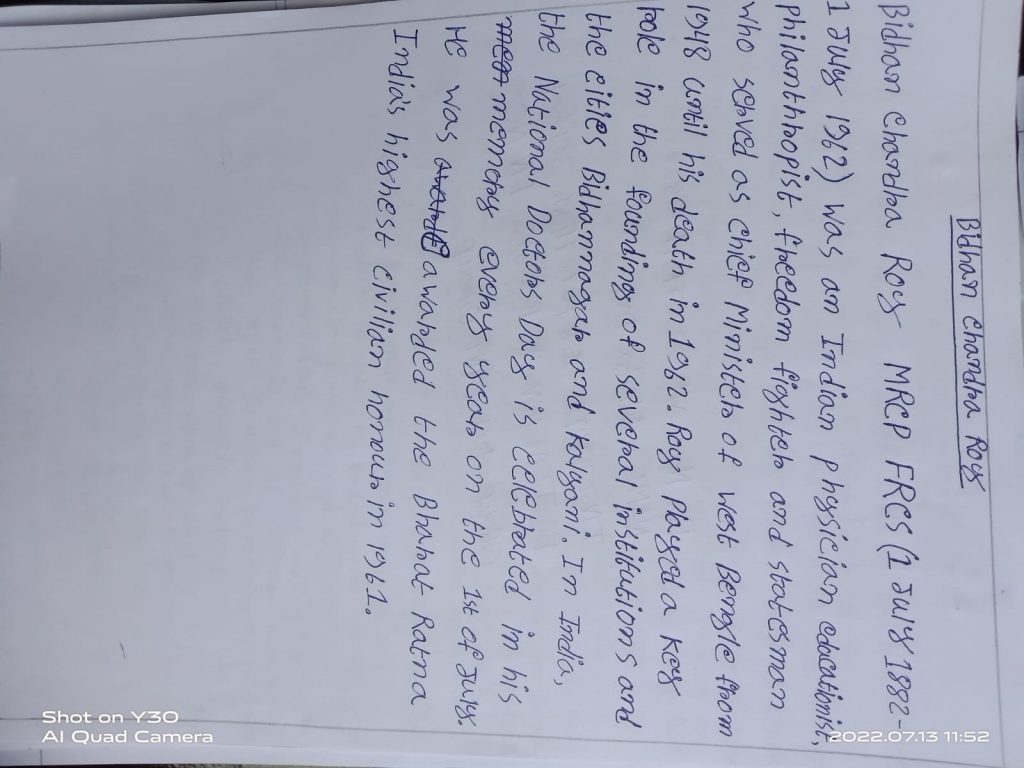 Bidhan Chandra Roy
Bidhan Chandra Roy MRCP FRCS (1 July 1882-
1 July 1962) was an Indian physician educationist,
philanthropist, freedom fighter and statesman
who served as chief Minister of west Bengle from
1948 until his death in 1962. Roy Played a key
role in the founding of several institutions and
the cities Bidhannagar and Kalyani. In India,
the National Doctors Day is celebrated in his
memory every year on the 1st of July.
He was awarded the Bharat Ratna
India's highest civilian honour in 1961.
Shot on Y30
AI Quad Camera
2022.07.13 11:52